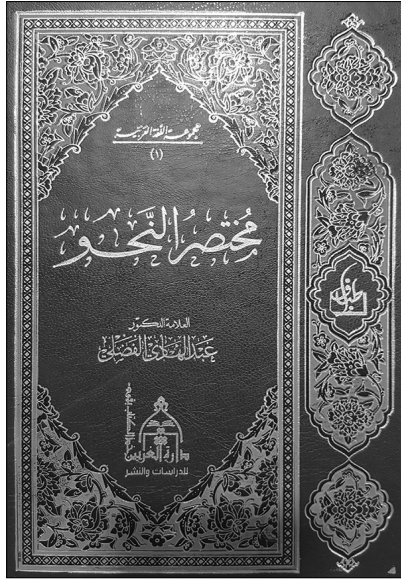 مجموعة اللغة العربية
(١)
مُختصرُ النَّحو
العلامة الدكتور
عبد الهادي الفضلي
دارة الغريين
للدراسات والنشر